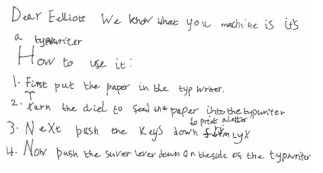 Dear Eelliott We know what you machine is it's
a typewriter
How to use it:
1. First put the paper in the typ writer.
2. Turn the diel to feed the paper into the typewriter
3. Next push the keys down firmlyx to print a letter
4. Now push the suver lever down on the side of the typwriter